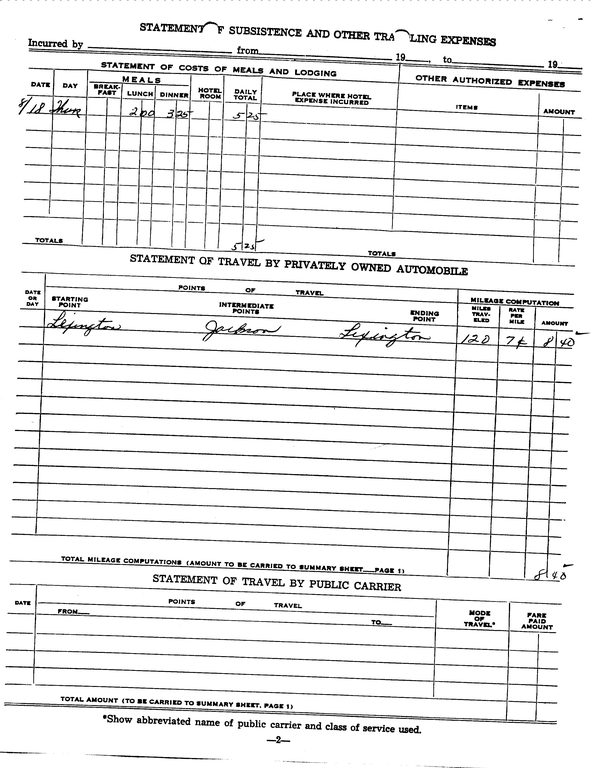 STATEMENT OF SUBSISTENCE AND OTHER TRAVELING EXPENSES
Incurred by from 19 , to 19
STATEMENT OF COSTS OF MEALS AND LODGING OTHER AUTHORIZED EXPENSES
DATE DAY MEALS BREAK-FAST LUNCH DINNER HOTEL ROOM DAILY TOTAL PLACE WHERE HOTEL EXPENSE INCURRED ITEMS AMOUNT
8/18 Thur 2 00 3 25 5 25
TOTALS 5 25 TOTALS
STATEMENT OF TRAVEL BY PRIVATELY OWNED AUTOMOBILE
DATE OR DAY POINTS OF TRAVEL MILEAGE COMPUTATION
STARTING POINT INTERMEDIATE POINTS ENDING POINT MILES TRAV-ELED RATE PER MILE AMOUNT
Lexington Jackson Lexington 120 7¢ 8 40
TOTAL MILEAGE COMPUTATIONS (AMOUNT TO BE CARRIED TO SUMMARY SHEET PAGE 1) 8 40
STATEMENT OF TRAVEL BY PUBLIC CARRIER
DATE POINTS OF TRAVEL MODE OF TRAVEL* FARE PAID AMOUNT
FROM TO
TOTAL AMOUNT (TO BE CARRIED TO SUMMARY SHEET, PAGE 1)
*Show abbreviated name of public carrier and class of service used.
—2—